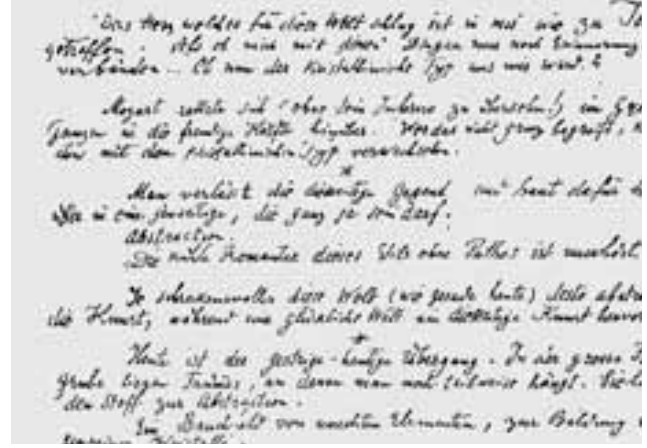 "Das Herz welches für diese Welt schlug ist in mir wie zu To
getroffen. Als ob mich mit diesen Dingen nur noch Erinnerung
verbänden.. Ob nun der kristallinische Typ aus mir wird?
Mozart rettete sich (ohne sein Inferno zu übersehn!) im Gro
Ganzen in die freudige Hälfte hinüber. Wer das nicht ganz begreift,
den mit dem kristallinischen Typ verwechseln.
*
Man verlässt die diesseitige Gegend und baut dafür
in eine jenseitige, die ganz ja sein darf.
Abstraction.
Die kühle Romantik dieses Stils ohne Pathos ist unerhört.
Je schreckensvoller diese Welt (wie gerade heute) desto abstr
die Kunst, während eine glückliche Welt eine diesseitige Kunst hervor
*
Heute ist der gestrige-heutige Übergang. In der grossen
grube liegen Trümmer, an denen man noch teilweise hängt. Sie
den Stoff zur Abstraction.
Ein Bruch von unechten Elementen, zur Bildung
Kristalle.